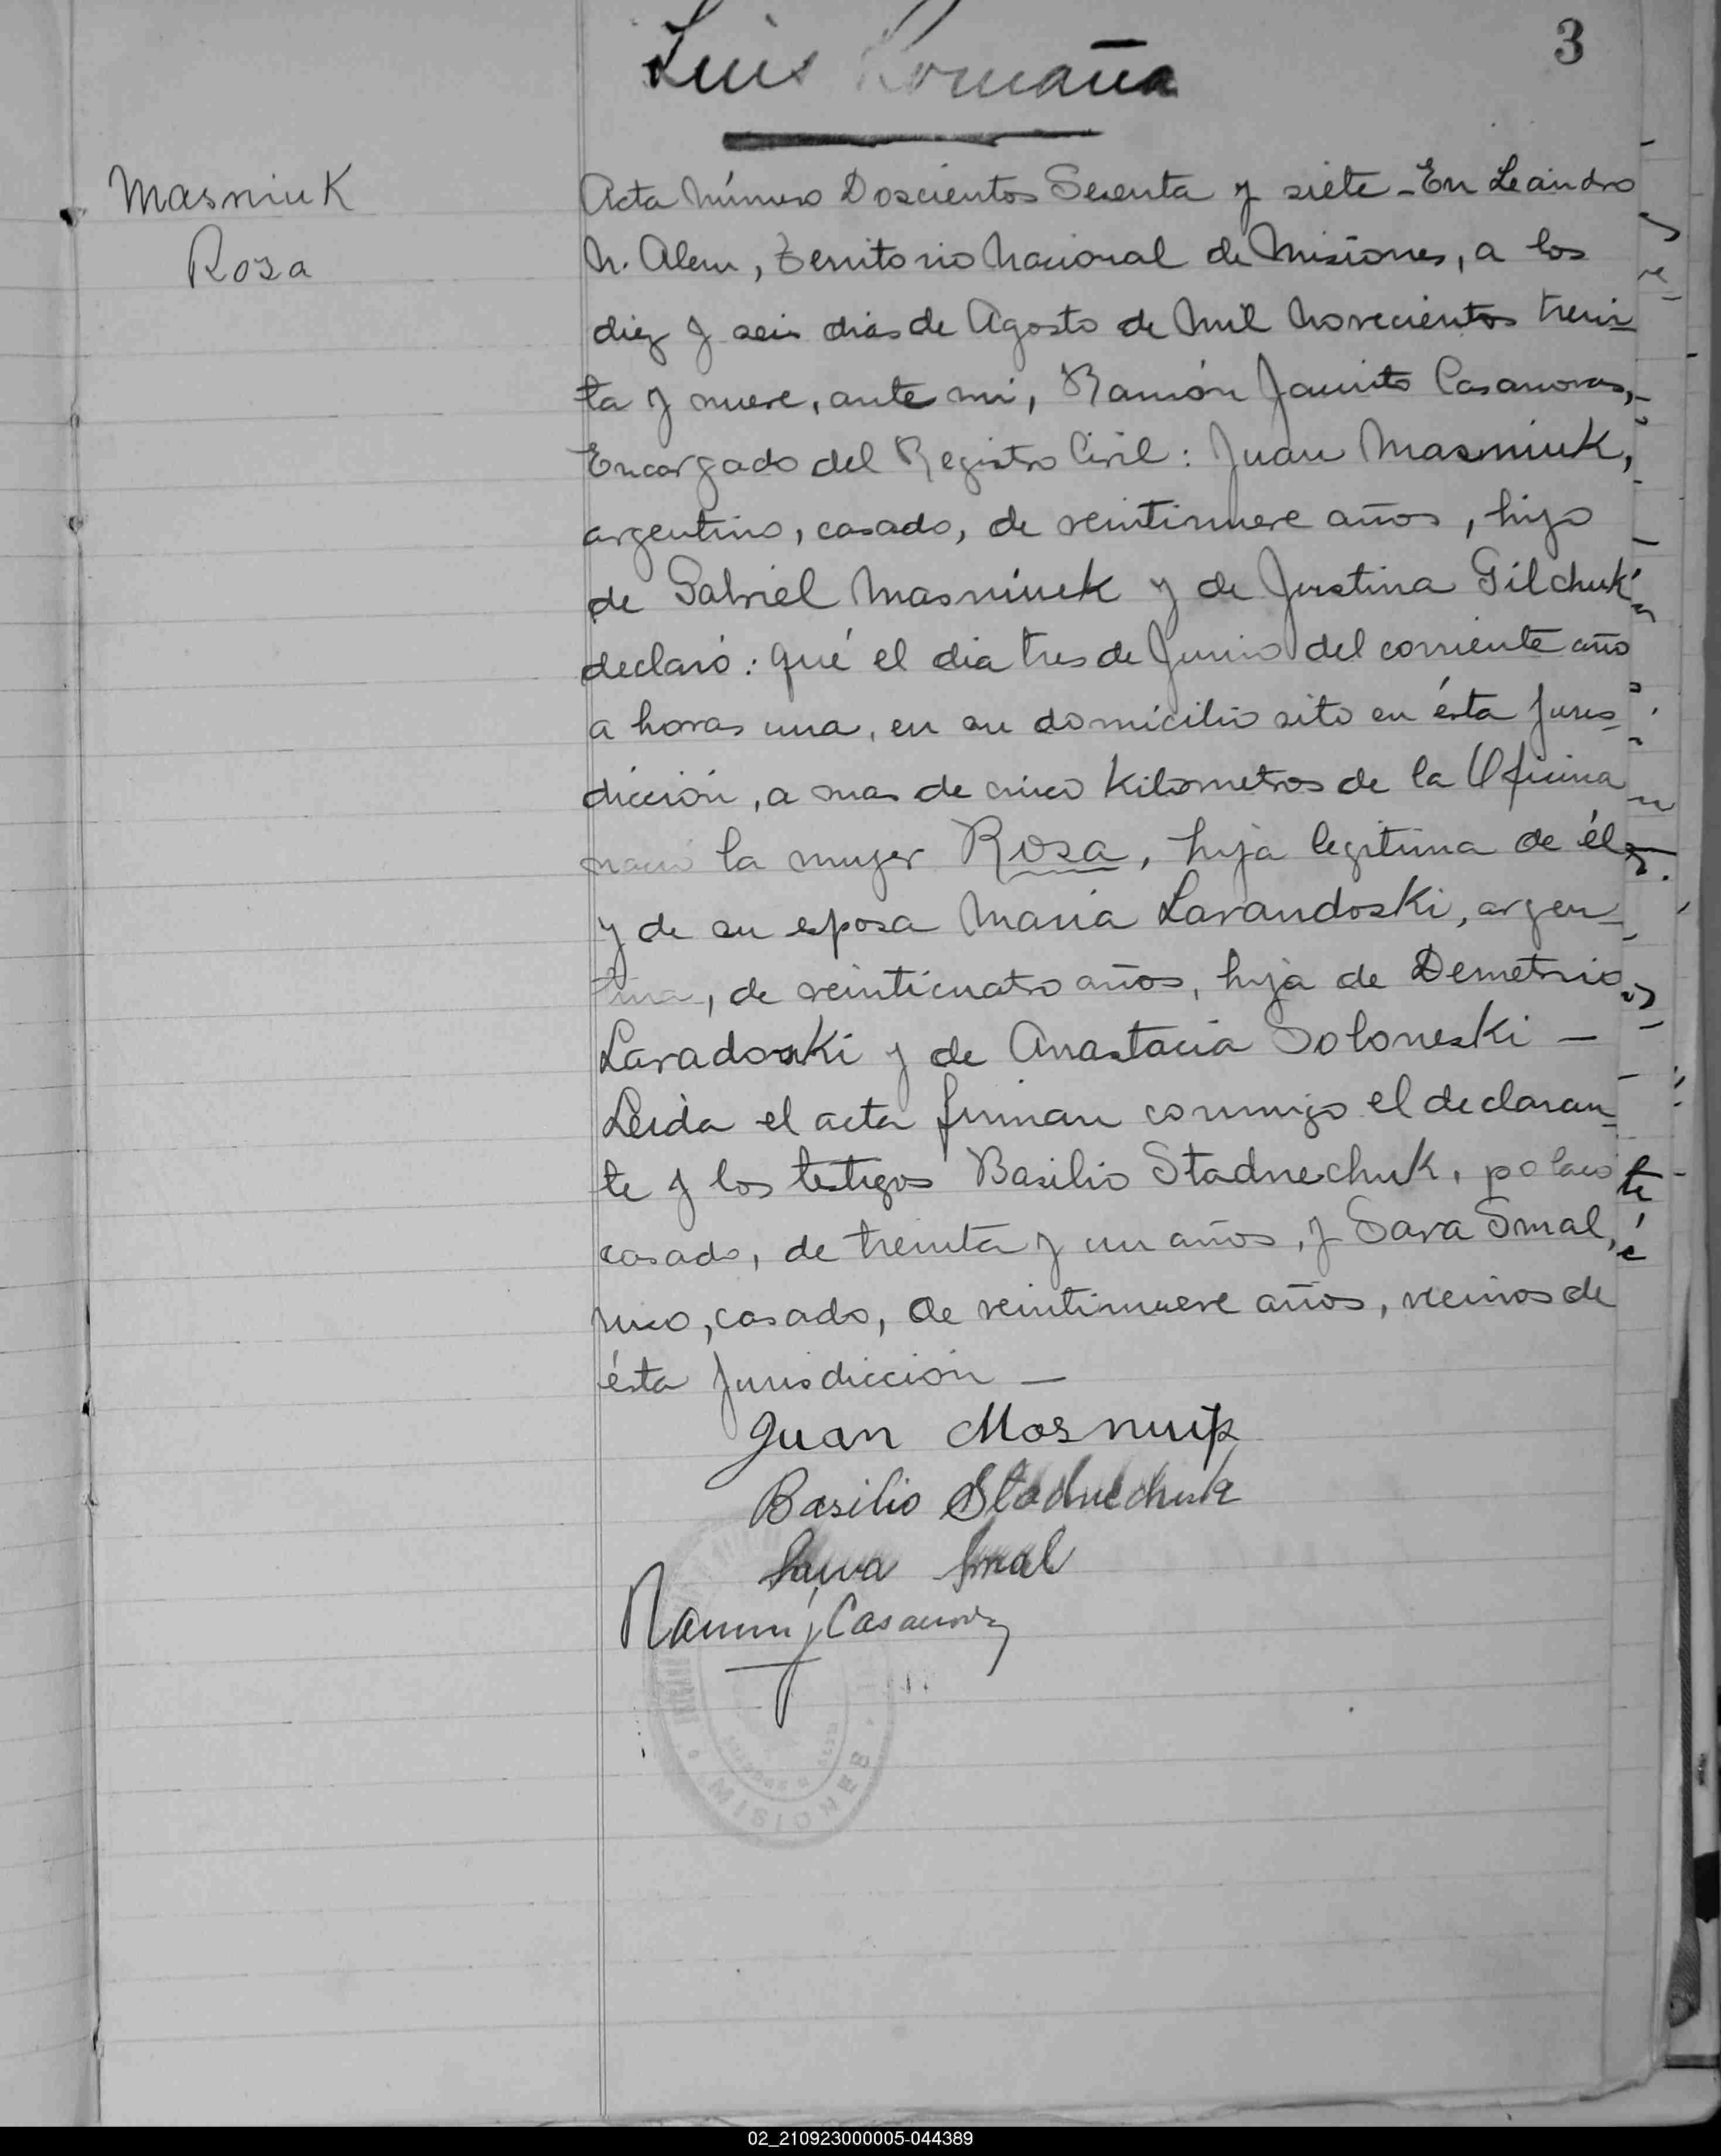 3
Luis Romaña
Masniuk
Rosa
Acta Número Doscientos Sesenta y siete - En Leandro
N. Alem, Territorio Nacional de Misiones, a los
diez y seis dias de Agosto de Mil Novecientos trein-
ta y nueve, ante mi, Ramón Jacinto Casanovas,
Encargado del Registro Civil: Juan Masniuk,
argentino, casado, de veintinueve años, hijo
de Gabriel Masniuk y de Justina Gilchuk
declaró: qué el dia tres de Junio del corriente año
a horas una, en su domicilio sito en ésta Juris-
dicción, a mas de cinco Kilometros de la Oficina
nació la mujer Rosa, hija legitima de él
y de su esposa Maria Lavandoski, argen-
tina, de veinticuatro años, hija de Demetrio
Lavadoski y de Anastacia Soloneski —
Leida el acta firman conmigo el declaran-
te y los testigos Basilio Stadnechuk, polaco
casado, de treinta y un años, y Sava Smal,
ruso, casado, de veintinueve años, vecinos de
ésta Jurisdicción —
Juan Mosnuik
Basilio Stadnechuk
Sawa Smal
Ramón J Casanovas
MISIONES
02_210923000005-044389